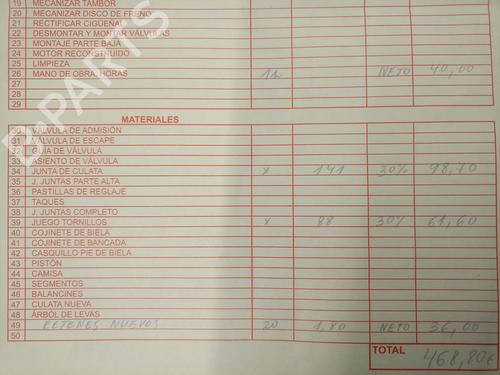 19 MECANIZAR TAMBOR
20 MECANIZAR DISCO DE FRENO
21 RECTIFICAR CIGÜEÑAL
22 DESMONTAR Y MONTAR VÁLVULAS
23 MONTAJE PARTE BAJA
24 MOTOR RECONSTRUIDO
25 LIMPIEZA
26 MANO DE OBRA, HORAS NETO 40,00
27
28
29
MATERIALES
30 VÁLVULA DE ADMISIÓN
31 VÁLVULA DE ESCAPE
32 GUÍA DE VÁLVULA
33 ASIENTO DE VÁLVULA
34 JUNTA DE CULATA x 141 30% 98,70
35 J. JUNTAS PARTE ALTA
36 PASTILLAS DE REGLAJE
37 TAQUES
38 J. JUNTAS COMPLETO
39 JUEGO TORNILLOS x 88 30% 61,60
40 COJINETE DE BIELA
41 COJINETE DE BANCADA
42 CASQUILLO PIE DE BIELA
43 PISTÓN
44 CAMISA
45 SEGMENTOS
46 BALANCINES
47 CULATA NUEVA
48 ÁRBOL DE LEVAS
49 RETENES NUEVOS 20 1,80 NETO 36,00
50
TOTAL 468,80€
B-PARTS